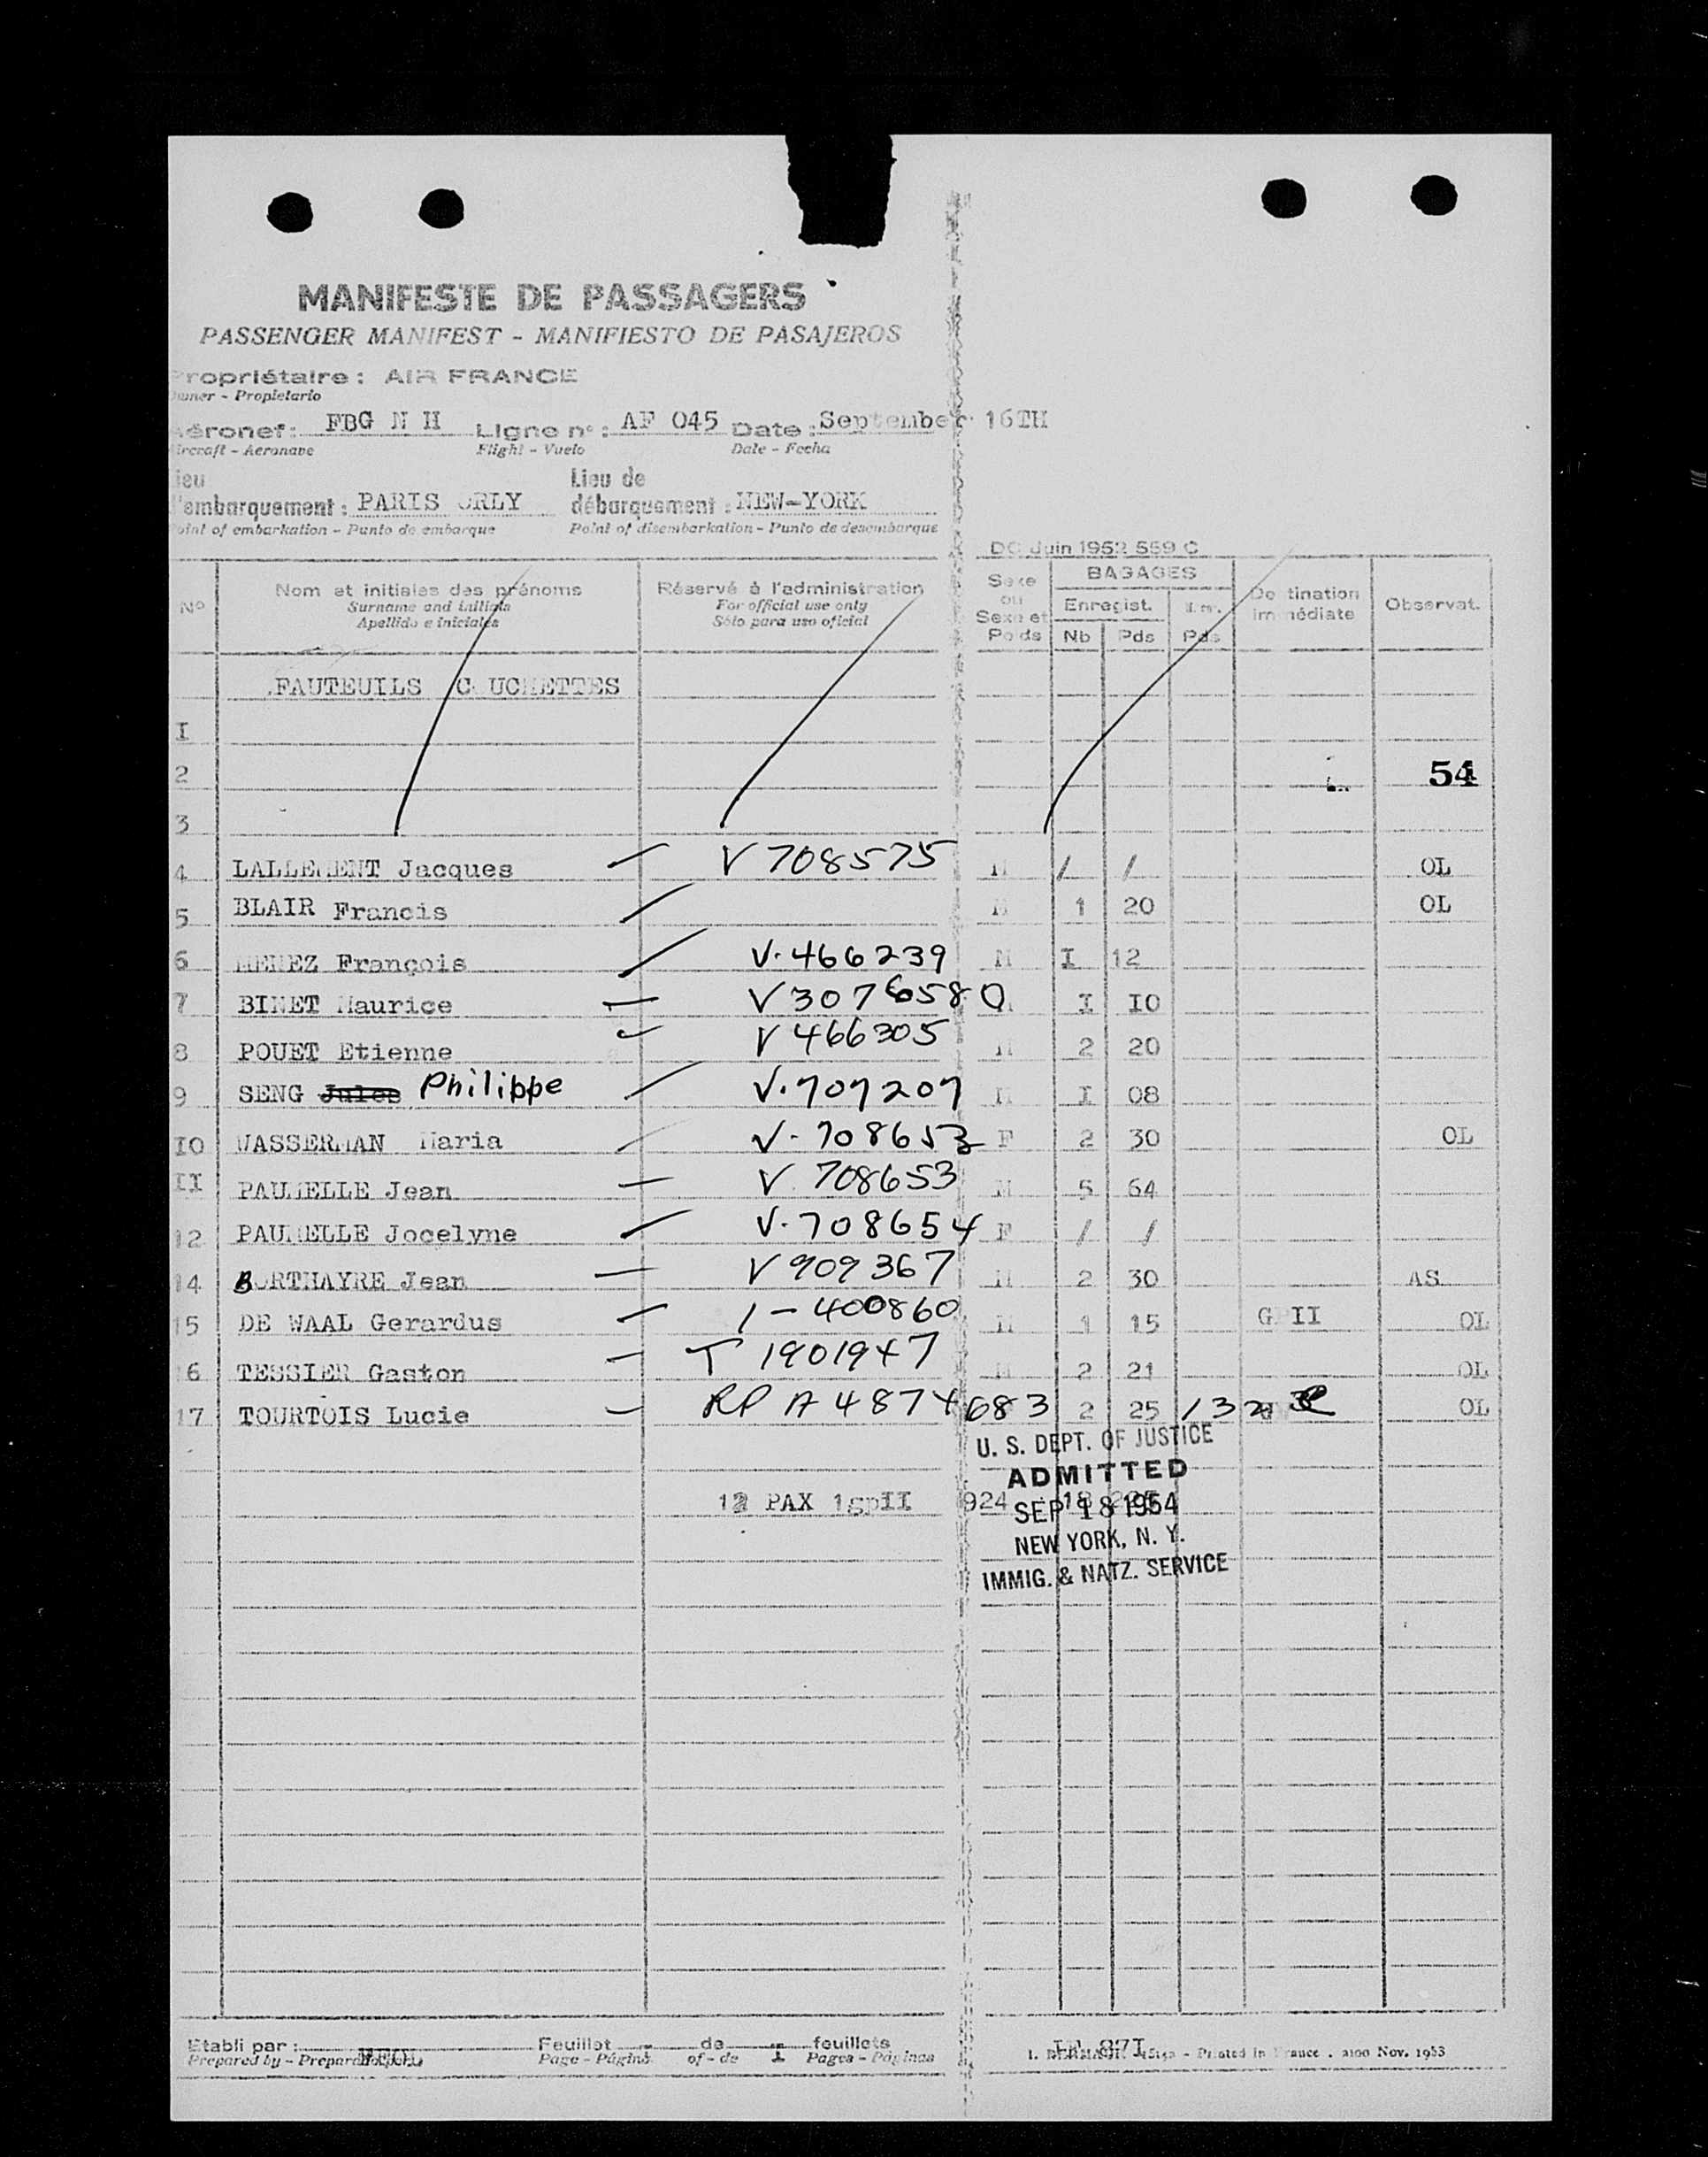 MANIFESTE DE PASSAGERS
PASSENGER MANIFEST - MANIFIESTO DE PASAJEROS
Propriétaire : AIR FRANCE
Owner - Propietario
Aéronef : FBG N H Ligne n° : AF 045 Date : September 16TH
Aircraft - Aeronave Flight - Vuelo Date - Fecha
Lieu Lieu de
d'embarquement : PARIS ORLY débarquement : NEW-YORK
Point of embarkation - Punto de embarque Point of disembarkation - Punto de desembarque
DC Juin 1952 559 C
N° Nom et initiales des prénoms Réservé à l'administration Sexe ou Sexe et Poids BAGAGES Destination immédiate Observat.
Surname and initials For official use only Enregist.
Apellido e iniciales Sólo para uso oficial Nb Pds Pds
FAUTEUILS COUCHETTES
I
2 54
3
4 LALLEMENT Jacques V 708575 M / / OL
5 BLAIR Francis M 1 20 OL
6 MENEZ François V. 466239 M I 12
7 BINET Maurice V 3076580 M I I0
8 POUET Etienne V 466305 M 2 20
9 SENG Jules Philippe V. 707207 M I 08
I0 WASSERMAN Maria V - 708652 F 2 30 OL
II PAUMELLE Jean V 708653 M 5 64
12 PAUMELLE Jocelyne V. 708654 F / /
14 BORTHAYRE Jean V 909367 M 2 30 AS
15 DE WAAL Gerardus 1 - 400860 M 1 15 GPII OL
16 TESSIER Gaston T 1901947 M 2 21 OL
17 TOURTOIS Lucie RP A 4874683 2 25 OL
U. S. DEPT. OF JUSTICE
ADMITTED
12 PAX 1gpII 924 18
SEP 18 1954
NEW YORK, N. Y.
IMMIG. & NATZ. SERVICE
Etabli par : Feuillet de I feuillets
Prepared by - Preparado por Page - Página of - de Pages - Páginas
Printed in France . 2100 Nov. 1953